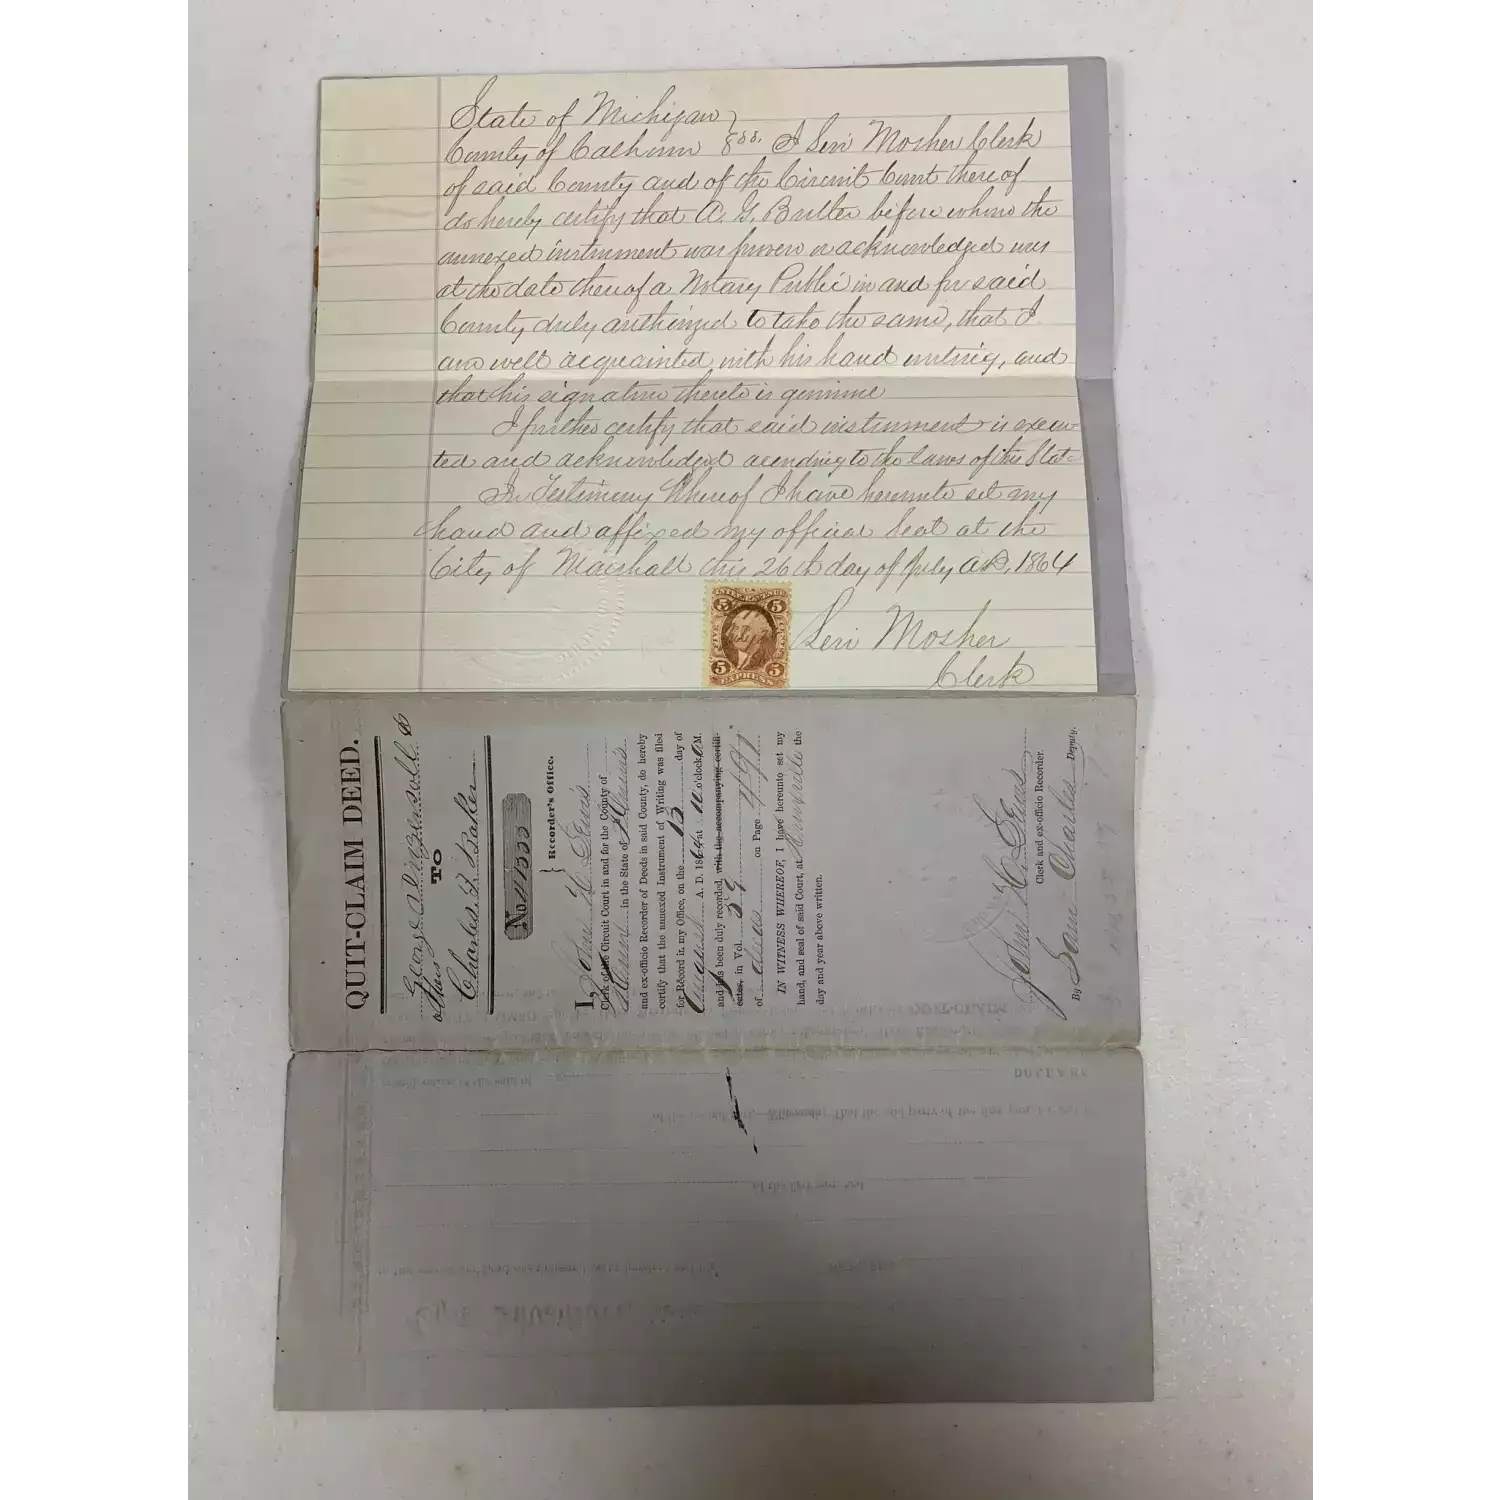 State of Michigan }
County of Calhoun } ss. I Levi Mosher Clerk
of said County and of the Circuit Court thereof
do hereby certify that A. G. Butler before whom the
annexed instrument was proven or acknowledged was
at the date thereof a Notary Public in and for said
County duly authorized to take the same, that I
am well acquainted with his hand writing, and
that his signature thereto is genuine
I further certify that said instrument is execu-
ted and acknowledged according to the laws of this State
In Testimony Whereof I have hereunto set my
hand and affixed my official Seal at the
City of Marshall this 26th day of July A.D. 1864
Levi Mosher
Clerk
U.S. INTER. REVENUE
5 5
FIVE CENTS
5 5
EXPRESS
QUIT-CLAIM DEED.
George A. Ingersoll &
others
TO
Charles. F. Baker
No. 41333
} Recorder's Office.
I, John H. Lewis
Clerk of the Circuit Court in and for the County of
in the State of Illinois
and ex-officio Recorder of Deeds in said County, do hereby
certify that the annexed Instrument of Writing was filed
for Record in my Office, on the 13 day of
August A. D. 1864 at 10 o'clock A M.
and has been duly recorded with the accompanying certifi-
cates, in Vol. 59
of deeds on Page 491
IN WITNESS WHEREOF, I have hereunto set my
hand, and seal of said Court, at Knoxville the
day and year above written.
John H. Lewis
Clerk and ex-officio Recorder.
By Sam Charles Deputy.
DOLLARS